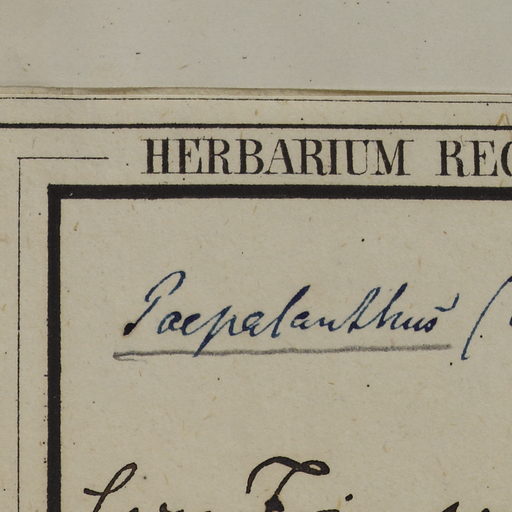 HERBARIUM REG
Paepalanthus (